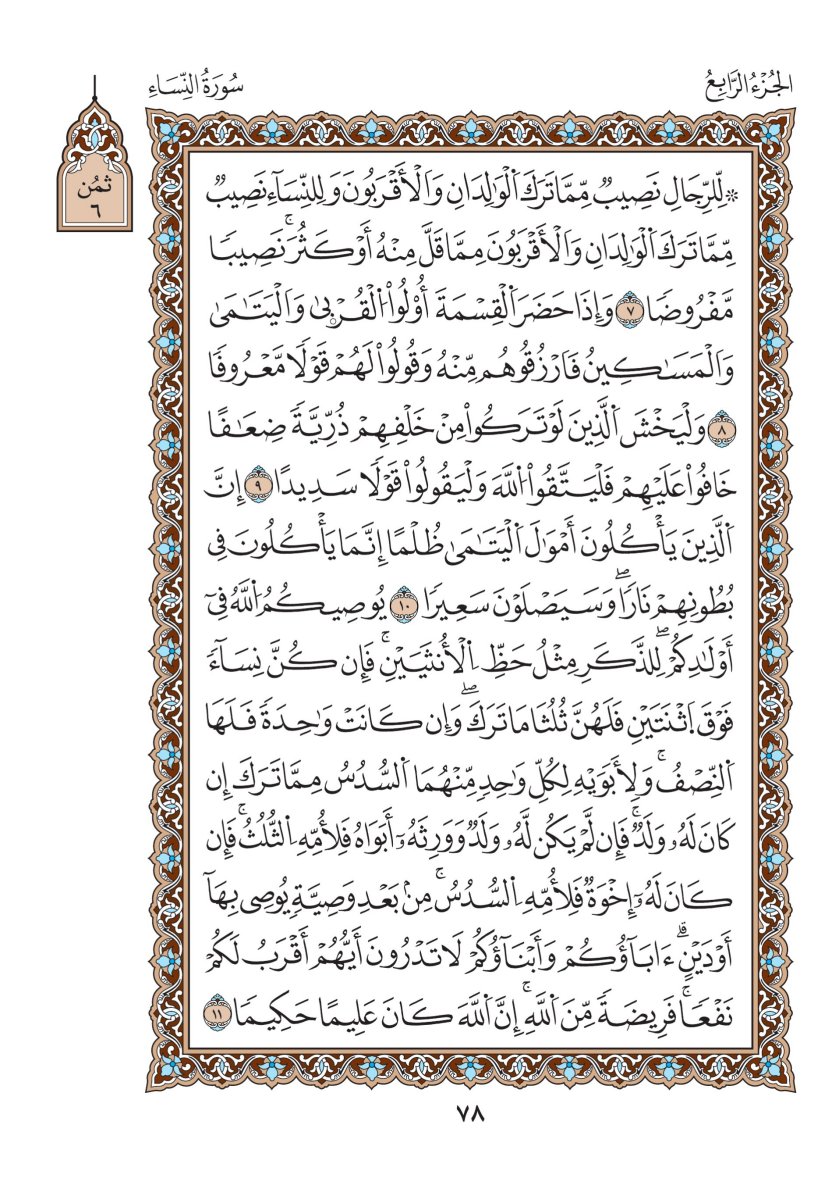 الجُزْءُ الرَّابِعُ
سُورَةُ النِّسَاءِ
ثُمُن
٦
۞ لِّلرِّجَالِ نَصِيبٞ مِّمَّا تَرَكَ اَ۬لْوَٰلِدَانِ وَالَاقْرَبُونَ وَلِلنِّسَآءِ نَصِيبٞ
مِّمَّا تَرَكَ اَ۬لْوَٰلِدَانِ وَالْأَقْرَبُونَ مِمَّا قَلَّ مِنْهُ أَوْ كَثُرَۚ نَصِيبٗا
مَّفْرُوضٗا ٧ وَإِذَا حَضَرَ اَ۬لْقِسْمَةَ أُوْلُواْ اُ۬لْقُرْب۪ىٰ وَالْيَتَٰمَىٰ
وَالْمَسَٰكِينُ فَارْزُقُوهُم مِّنْهُ وَقُولُواْ لَهُمْ قَوْلٗا مَّعْرُوفٗا
٨ وَلْيَخْشَ اَ۬لَّذِينَ لَوْ تَرَكُواْ مِنْ خَلْفِهِمْ ذُرِّيَّةٗ ضِعَٰفًا
خَافُواْ عَلَيْهِمْ فَلْيَتَّقُواْ اُ۬للَّهَ وَلْيَقُولُواْ قَوْلٗا سَدِيدًا ٩ إِنَّ
اَ۬لَّذِينَ يَأْكُلُونَ أَمْوَٰلَ اَ۬لْيَتَٰمَىٰ ظُلْمًا إِنَّمَا يَأْكُلُونَ فِي
بُطُونِهِمْ نَارٗاۖ وَسَيَصْلَوْنَ سَعِيرٗا ١٠ يُوصِيكُمُ اُ۬للَّهُ فِيٓ
أَوْلَٰدِكُمْۖ لِلذَّكَرِ مِثْلُ حَظِّ اِ۬لْأُنثَيَيْنِۚ فَإِن كُنَّ نِسَآءٗ
فَوْقَ اَ۪ثْنَتَيْنِ فَلَهُنَّ ثُلُثَا مَا تَرَكَۖ وَإِن كَانَتْ وَٰحِدَةٗ فَلَهَا
اَ۬لنِّصْفُۚ وَلِأَبَوَيْهِ لِكُلِّ وَٰحِدٖ مِّنْهُمَا اَ۬لسُّدُسُ مِمَّا تَرَكَ إِن
كَانَ لَهُۥ وَلَدٞۚ فَإِن لَّمْ يَكُن لَّهُۥ وَلَدٞ وَوَرِثَهُۥٓ أَبَوَاهُ فَلِأُمِّهِ اِ۬لثُّلُثُۚ فَإِن
كَانَ لَهُۥٓ إِخْوَةٞ فَلِأُمِّهِ اِ۬لسُّدُسُۚ مِنۢ بَعْدِ وَصِيَّةٖ يُوصِي بِهَآ
أَوْ دَيْنٍۗ ءَابَآؤُكُمْ وَأَبْنَآؤُكُمْ لَا تَدْرُونَ أَيُّهُمْ أَقْرَبُ لَكُمْ
نَفْعٗاۚ فَرِيضَةٗ مِّنَ اَ۬للَّهِۚ إِنَّ اَ۬للَّهَ كَانَ عَلِيمًا حَكِيمٗا ١١
٧٨